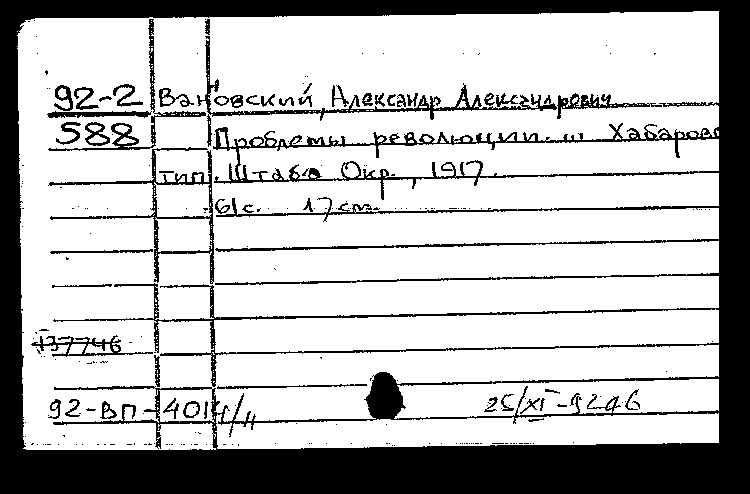 92-2 Вановский, Александр Александрович
588 Проблемы революции. Хабаровс
тип. Штаба Окр., 1917.
61с. 17 см.
137746
92-ВП-4014/
25/XI-92